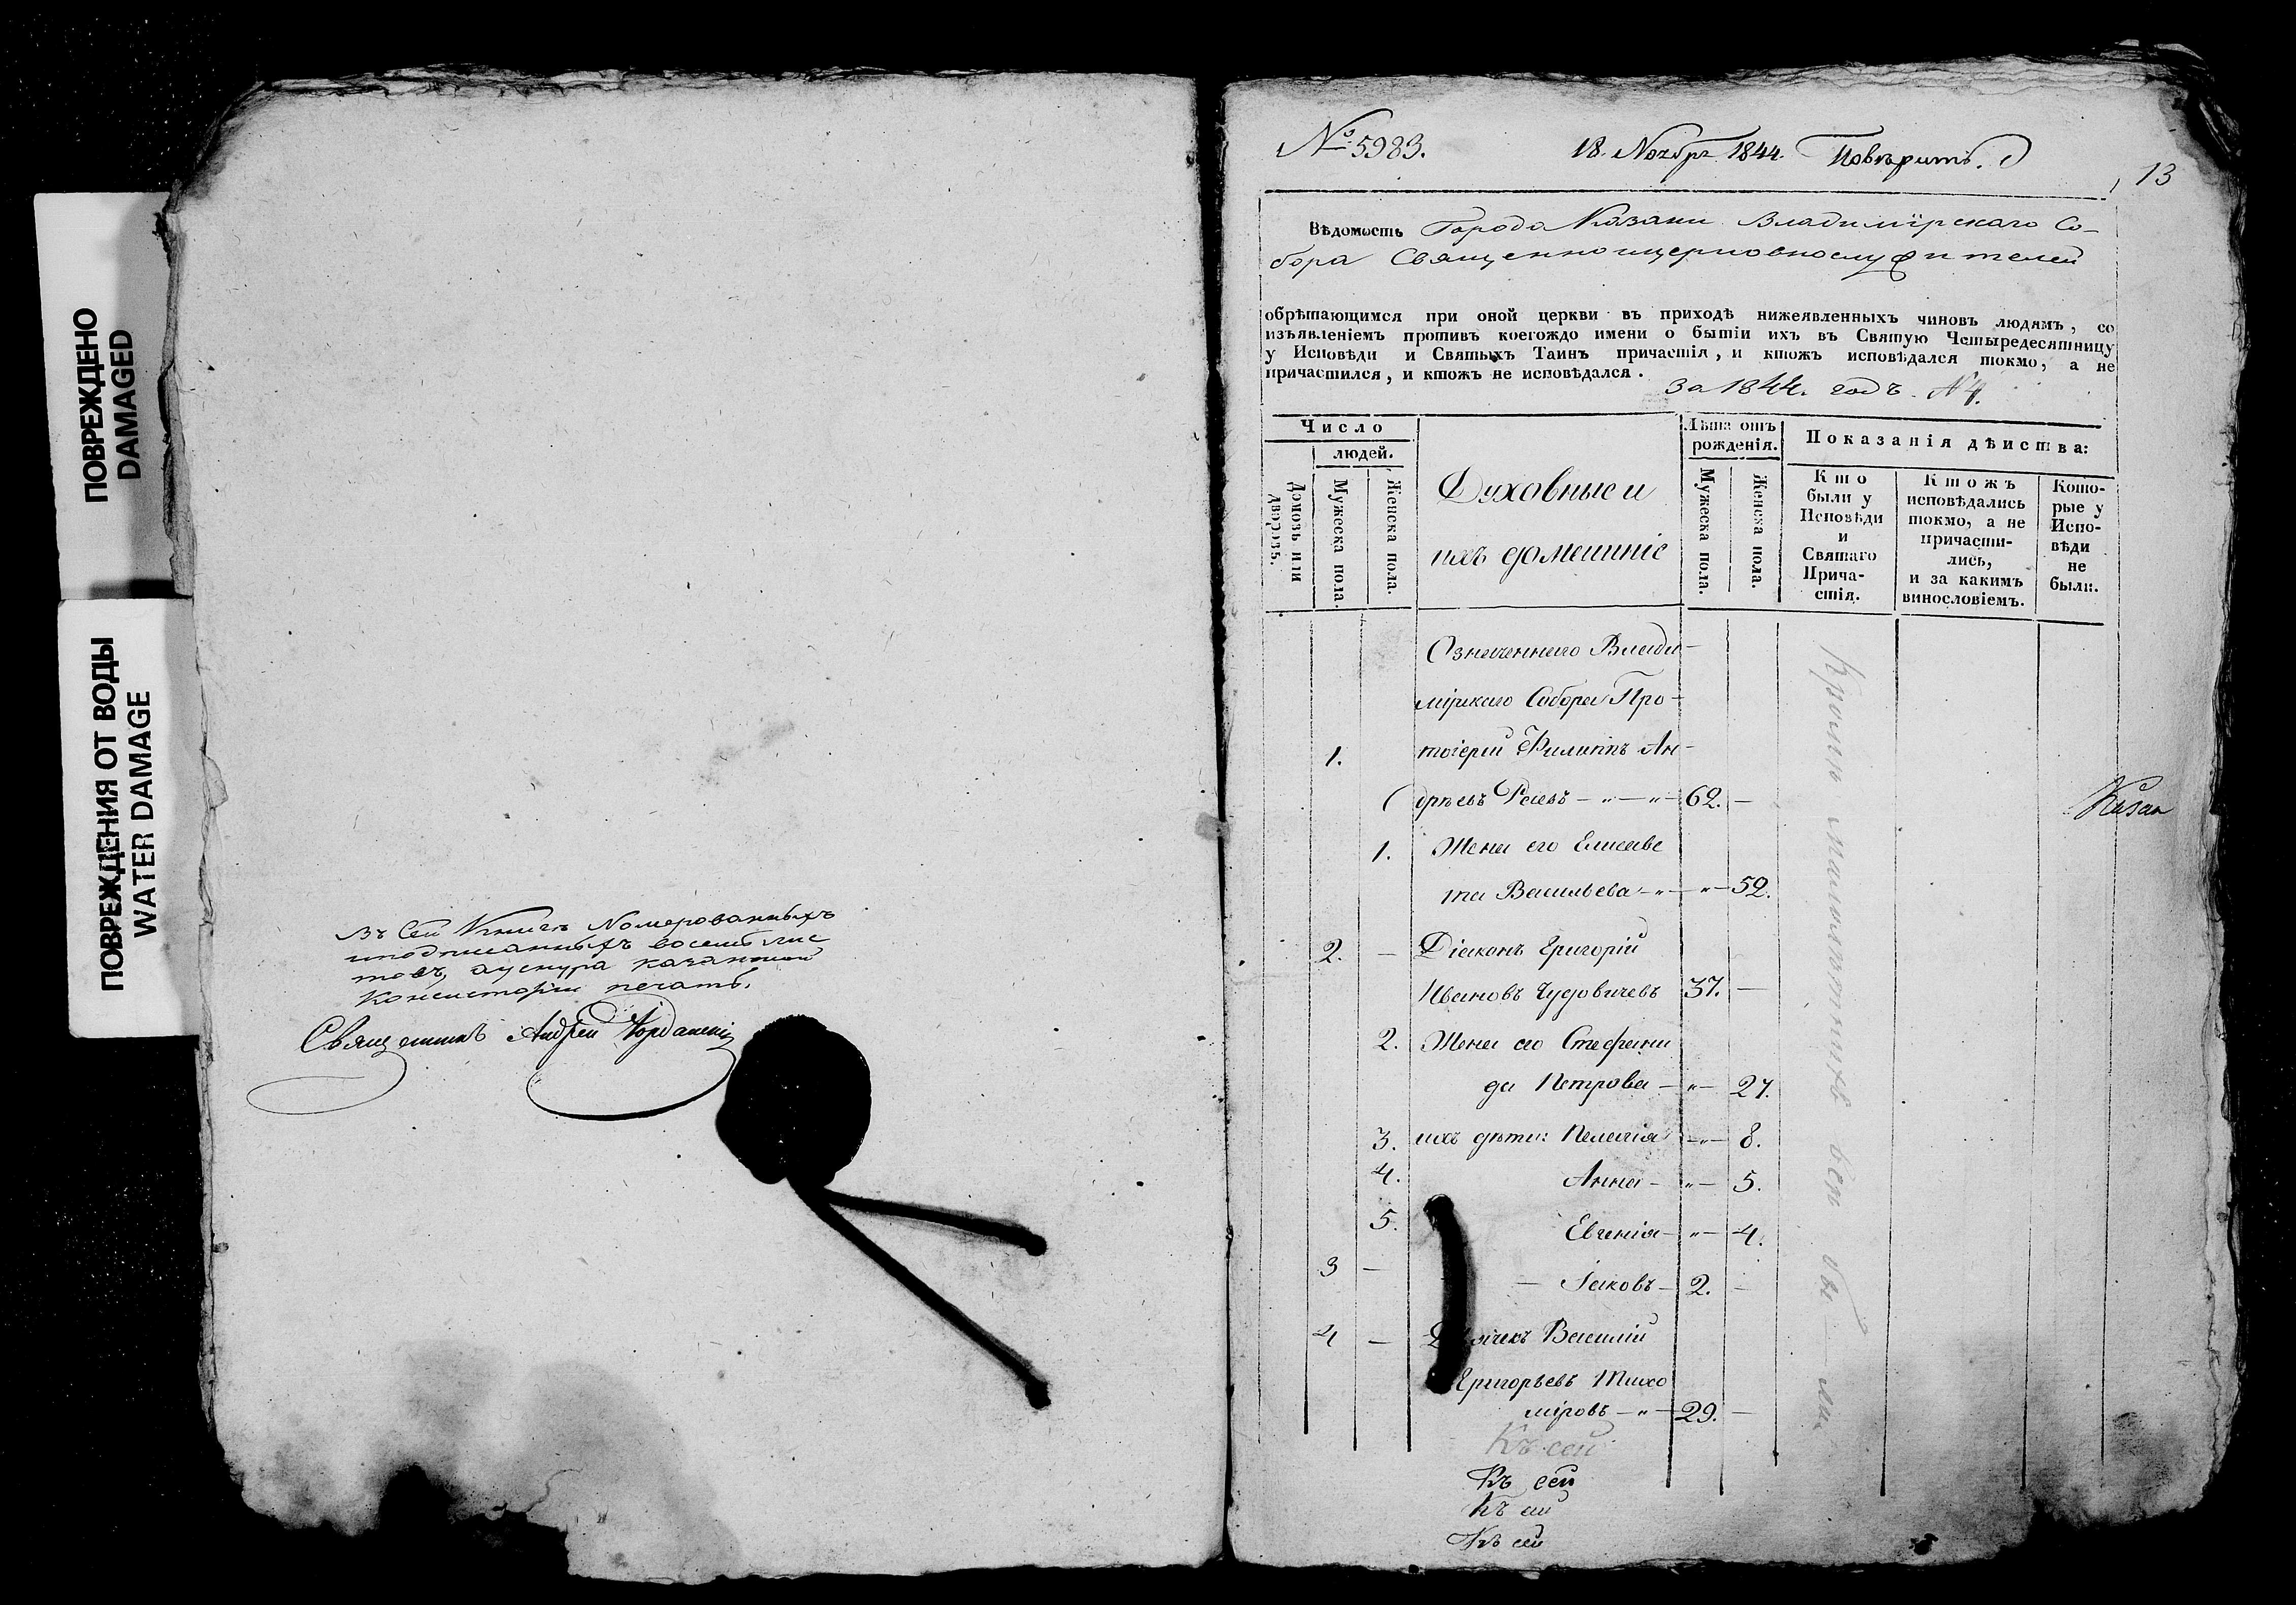 ПОВРЕЖДЕНО
DAMAGED
ПОВРЕЖДЕНИЯ ОТ ВОДЫ
WATER DAMAGE
Въ Сей Книгѣ Номерованныхъ
иподписанныхъ восемь лис
товъ, ауснура казанской
Консисторiи печать.
Священникъ Андрей Iорданскiй
№ 5983. 18. Ноября 1844. Повѣрить.
13
Вѣдомость Города Казани Владимiрскаго Со-
бора Священноицерковнослужителей
обрѣтающимся при оной церкви въ приходѣ нижеявленныхъ чиновъ людямъ, со
изъявленiемъ противъ коегождо имени о бытiи ихъ въ Святую Четыредесятницу
у Исповѣди и Святыхъ Таинъ причастiя, и ктожъ исповѣдался токмо, а не
причастился, и ктожъ не исповѣдался.
За 1844. годъ.
Число
людей.
Домовъ или дворовъ.
Мужеска пола.
Женска пола.
Духовные и
ихъ домашнiе
Лѣта отъ
рожденiя.
Мужеска пола.
Женска пола.
Показанiя дѣиства:
Кто
были у
Исповѣди
и
Святаго
Прича-
стiя.
Ктожъ
исповѣдались
токмо, а не
причасти-
лись,
и за какимъ
винословiемъ.
Кото-
рые у
Испо-
вѣди
не
были.
Означеннаго Влади-
мiрскаго Собора Про-
1. тоiерей Филиппъ Ан-
дрѣевъ Раевъ - " - " - 62. -
1. Жена его Елисаве
та Васильева - " - " - 52.
2. - Дiаконъ Григорiй
Ивановъ Чудовичевъ 37. -
2. Жена его Стефани
да Петрова - " - 27.
3. ихъ дѣти: Пелагiя - " - 8.
4. Анна - " - 5.
5. Евгенiя - " - 4.
3 - - Iаковъ - 2. -
4 - Дьячекъ Василiй
Григорьевъ Тихо
мiровъ - " - 29. -
Кромѣ малолѣтнихъ вси бы - ли
Казан
Къ сей
Къ сей
Къ сей
Къ сей